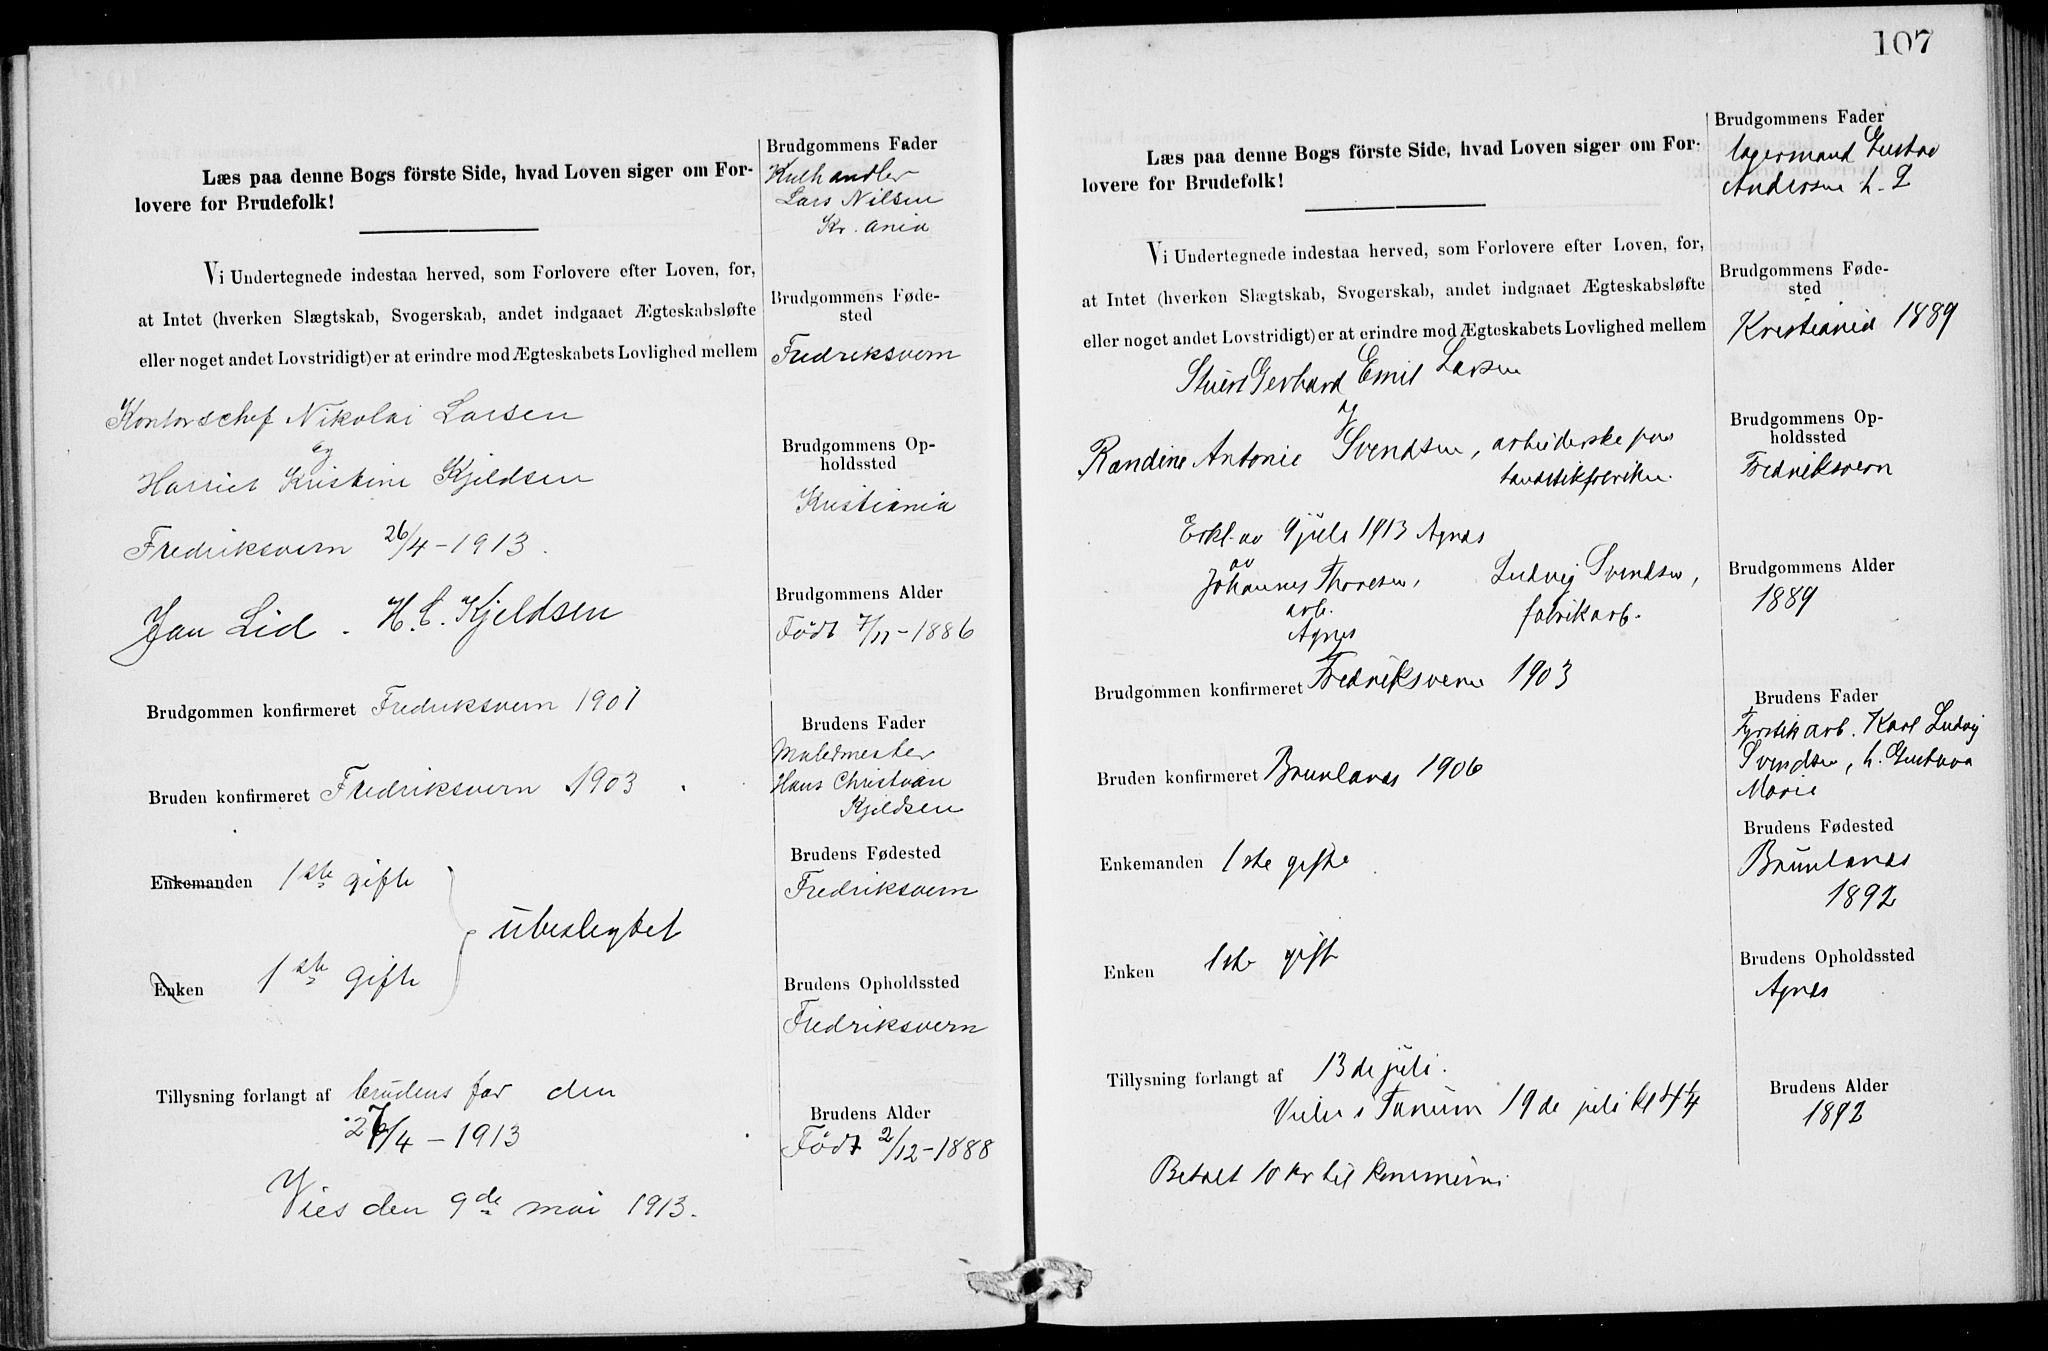 Læs paa denne Bogs förste Side, hvad Loven siger om For-
lovere for Brudefolk!
Vi Undertegnede indestaa herved, som Forlovere efter Loven, for,
at Intet (hverken Slægtskab, Svogerskab, andet indgaaet Ægteskabsløfte
eller noget andet Lovstridigt) er at erindre mod Ægteskabets Lovlighed mellem
Kontorschef Nikolai Larsen
og
Harriet Kristine Kjeldsen
Fredriksvern 26/4-1913.
Jan Lid. H. C. Kjeldsen
Brudgommen konfirmeret Fredriksvern 1901
Bruden konfirmeret Fredriksvern 1903
Enkemanden 1ste gifte
ubeslegtet
Enken 1ste gifte
Tillysning forlangt af brudens far den
/4-1913
Vies den 9de mai 1913.
Brudgommens Fader
Kulhandler
Lars Nilsen
Kr.ania
Brudgommens Føde-
sted
Fredriksvern
Brudgommens Op-
holdssted
Kristiania
Brudgommens Alder
Født 7/11-1886
Brudens Fader
Malermester
Hans Christian
Kjeldsen
Brudens Fødested
Fredriksvern
Brudens Opholdssted
Fredriksvern
Brudens Alder
Født 2/12-1888
107
Læs paa denne Bogs förste Side, hvad Loven siger om For-
lovere for Brudefolk!
Vi Undertegnede indestaa herved, som Forlovere efter Loven, for,
at Intet (hverken Slægtskab, Svogerskab, andet indgaaet Ægteskabsløfte
eller noget andet Lovstridigt) er at erindre mod Ægteskabets Lovlighed mellem
Gerhard Emil Larsen
og
Randine Antonie Svendsen, arbeiderske paa
Erkl. av 9 juli 1913 Agnes
av
Johannes Thoresen, Ludvig Svendsen,
arb. fabrikarb.
Agnes
Brudgommen konfirmeret Fredriksvern 1903
Bruden konfirmeret Brunlanes 1906
Enkemanden 1ste gifte
Enken 1ste gift
Tillysning forlangt af 13de juli.
Vies i Tanum 19de juli kl 4 1/4
Betalt 10 kr til kommunen
Brudgommens Fader
Lagermand Gustav
Andersen L.
Brudgommens Føde-
sted
Kristiania 1889
Brudgommens Op-
holdssted
Fredriksvern
Brudgommens Alder
1889
Brudens Fader
Fyrstikarb. Karl Ludvig
Svendsen, h. Gustava
Marie
Brudens Fødested
Brunlanes
1892
Brudens Opholdssted
Agnes
Brudens Alder
1892